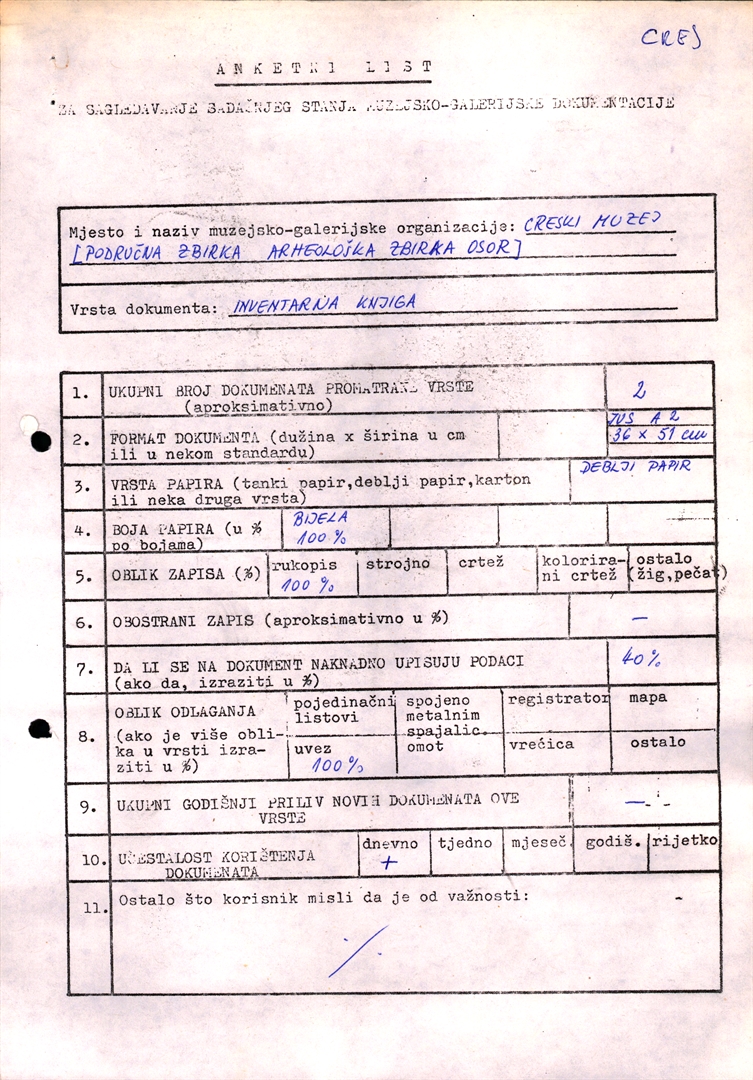 CRES
ANKETNI LIST
ZA SAGLEDAVANJE SADAŠNJEG STANJA MUZEJSKO-GALERIJSKE DOKUMENTACIJE
Mjesto i naziv muzejsko-galerijske organizacije: CRESKI MUZEJ
[PODRUČNA ZBIRKA ARHEOLOŠKA ZBIRKA OSOR]
Vrsta dokumenta: INVENTARNA KNJIGA
1. UKUPNI BROJ DOKUMENATA PROMATRANE VRSTE 2
(aproksimativno)
JUS A 2
2. FORMAT DOKUMENTA (dužina x širina u cm 36 x 51 cm
ili u nekom standardu)
3. VRSTA PAPIRA (tanki papir,deblji papir,karton DEBLJI PAPIR
ili neka druga vrsta)
4. BOJA PAPIRA (u % BIJELA
po bojama) 100 %
5. OBLIK ZAPISA (%) rukopis strojno crtež kolorira- ostalo
100 % ni crtež (žig,pečat)
6. OBOSTRANI ZAPIS (aproksimativno u %) —
7. DA LI SE NA DOKUMENT NAKNADNO UPISUJU PODACI 40%
(ako da, izraziti u %)
8. OBLIK ODLAGANJA pojedinačni spojeno registrator mapa
listovi metalnim
(ako je više obli- spajalic.
ka u vrsti izra- uvez omot vrećica ostalo
ziti u %) 100 %
9. UKUPNI GODIŠNJI PRILIV NOVIH DOKUMENATA OVE —
VRSTE
10. UČESTALOST KORIŠTENJA dnevno tjedno mjeseč. godiš. rijetko
DOKUMENATA +
11. Ostalo što korisnik misli da je od važnosti: -
./.